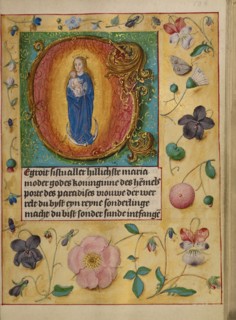 Egroit sistu aller hillichste maria
moder godes koningynne des hemels
porte des paradises vrouwe der wer
relt du byst eyn reyne sonderlinge
macht du bist sonder sunde intfange